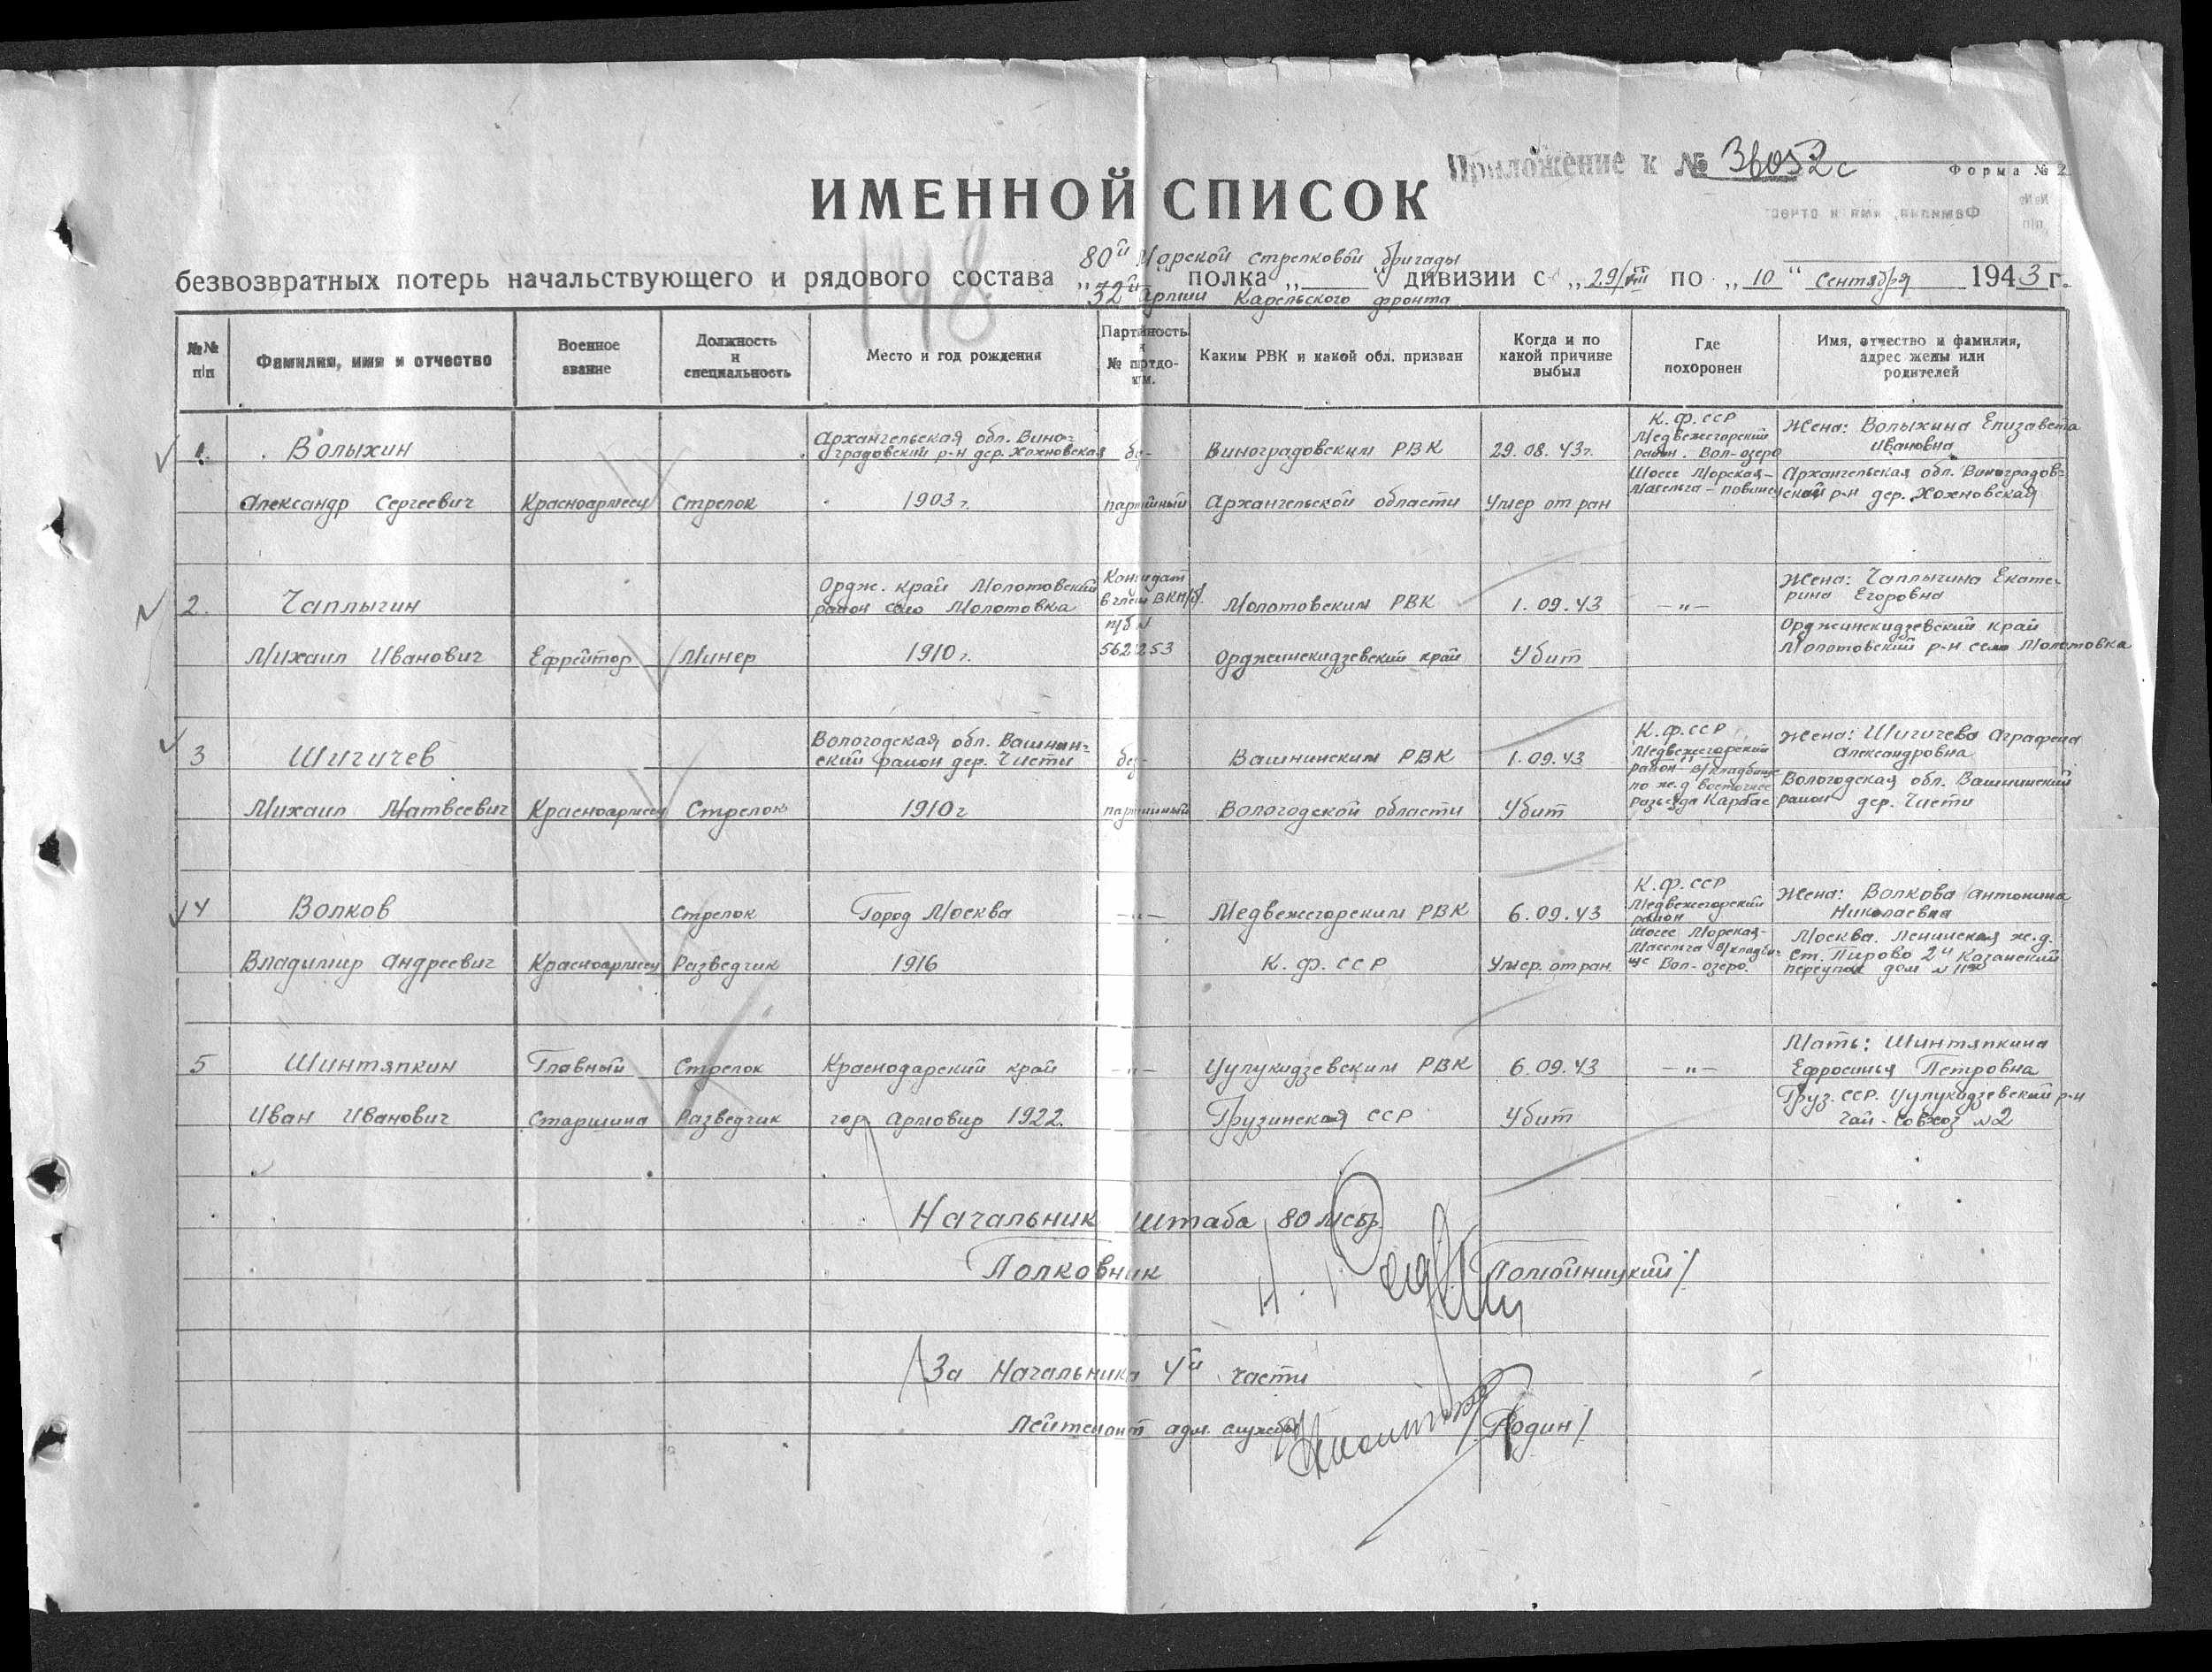 Приложение к № 36052с
Форма № 2
ИМЕННОЙ СПИСОК
80й Морской стрелковой бригады
безвозвратных потерь начальствующего и рядового состава „ “ полка „ “ дивизии с „29/VIII по „10“ Сентября 1943 г.
32й армии Карельского фронта
148
№№ п/п
Фамилия, имя и отчество
Военное звание
Должность и специальность
Место и год рождения
Партийность и № партдокум.
Каким РВК и какой обл. призван
Когда и по какой причине выбыл
Где похоронен
Имя, отчество и фамилия, адрес жены или родителей
1.
Волыхин
Александр Сергеевич
Красноармеец
Стрелок
Архангельская обл. Вино-
градовский р-н дер. Хохновская
1903 г.
бес-
партийный
Виноградовским РВК
Архангельской области
29.08.43г.
Умер от ран
К.Ф.ССР
Медвежегорский
район. Вол-озеро
Шоссе Морская-
Масельга -
Жена: Волыхина Елизавета
Ивановна
Архангельская обл. Виноградов-
ский р-н дер. Хохновская
2.
Чаплыгин
Михаил Иванович
Ефрейтор
Минер
Ордж. край Молотовский
район село Молотовка
1910 г.
Кандидат
в члены ВКП/б/
п/б №
562253
Молотовским РВК
Орджиникидзевский край
1.09.43
Убит
—"—
Жена: Чаплыгина Екате-
рина Егоровна
Орджиникидзевский край
Молотовский р-н село Молотовка
3
Шигичев
Михаил Матвеевич
Красноармеец
Стрелок
Вологодская обл. Вашнин-
ский район дер. Чисти
1910 г
без-
партийный
Вашнинским РВК
Вологодской области
1.09.43
Убит
К.Ф.ССР
Медвежегорский
район В/кладбище
по ж.д восточнее
разъезда Карбас
Жена: Шигичева Аграфена
Александровна
Вологодская обл. Вашнинский
район дер. Чисти
4
Волков
Владимир Андреевич
Красноармеец
Стрелок
Разведчик
Город Москва
1916
—"—
Медвежегорским РВК
К.Ф.ССР
6.09.43
Умер. от ран
К.Ф.ССР
Медвежегорский
район
шоссе Морская-
Масельга В/кладби-
ще Вол-озеро.
Жена: Волкова Антонина
Николаевна
Москва. Ленинская ж.д.
Ст. Пирово 2й Казанский
переулок дом №
5
Шинтяпкин
Иван Иванович
Главный
Старшина
Стрелок
Разведчик
Краснодарский край
гор. Армовир 1922.
—"—
Цулукидзевским РВК
Грузинская ССР
6.09.43
Убит
—"—
Мать: Шинтяпкина
Ефросинья Петровна
Груз. ССР. Цулукидзевский р-н
Чай-совхоз №2
Начальник штаба 80 мсбр.
Полковник /Помойницкий/
За Начальника 4й части
Лейтенант адм. службы /Родин/